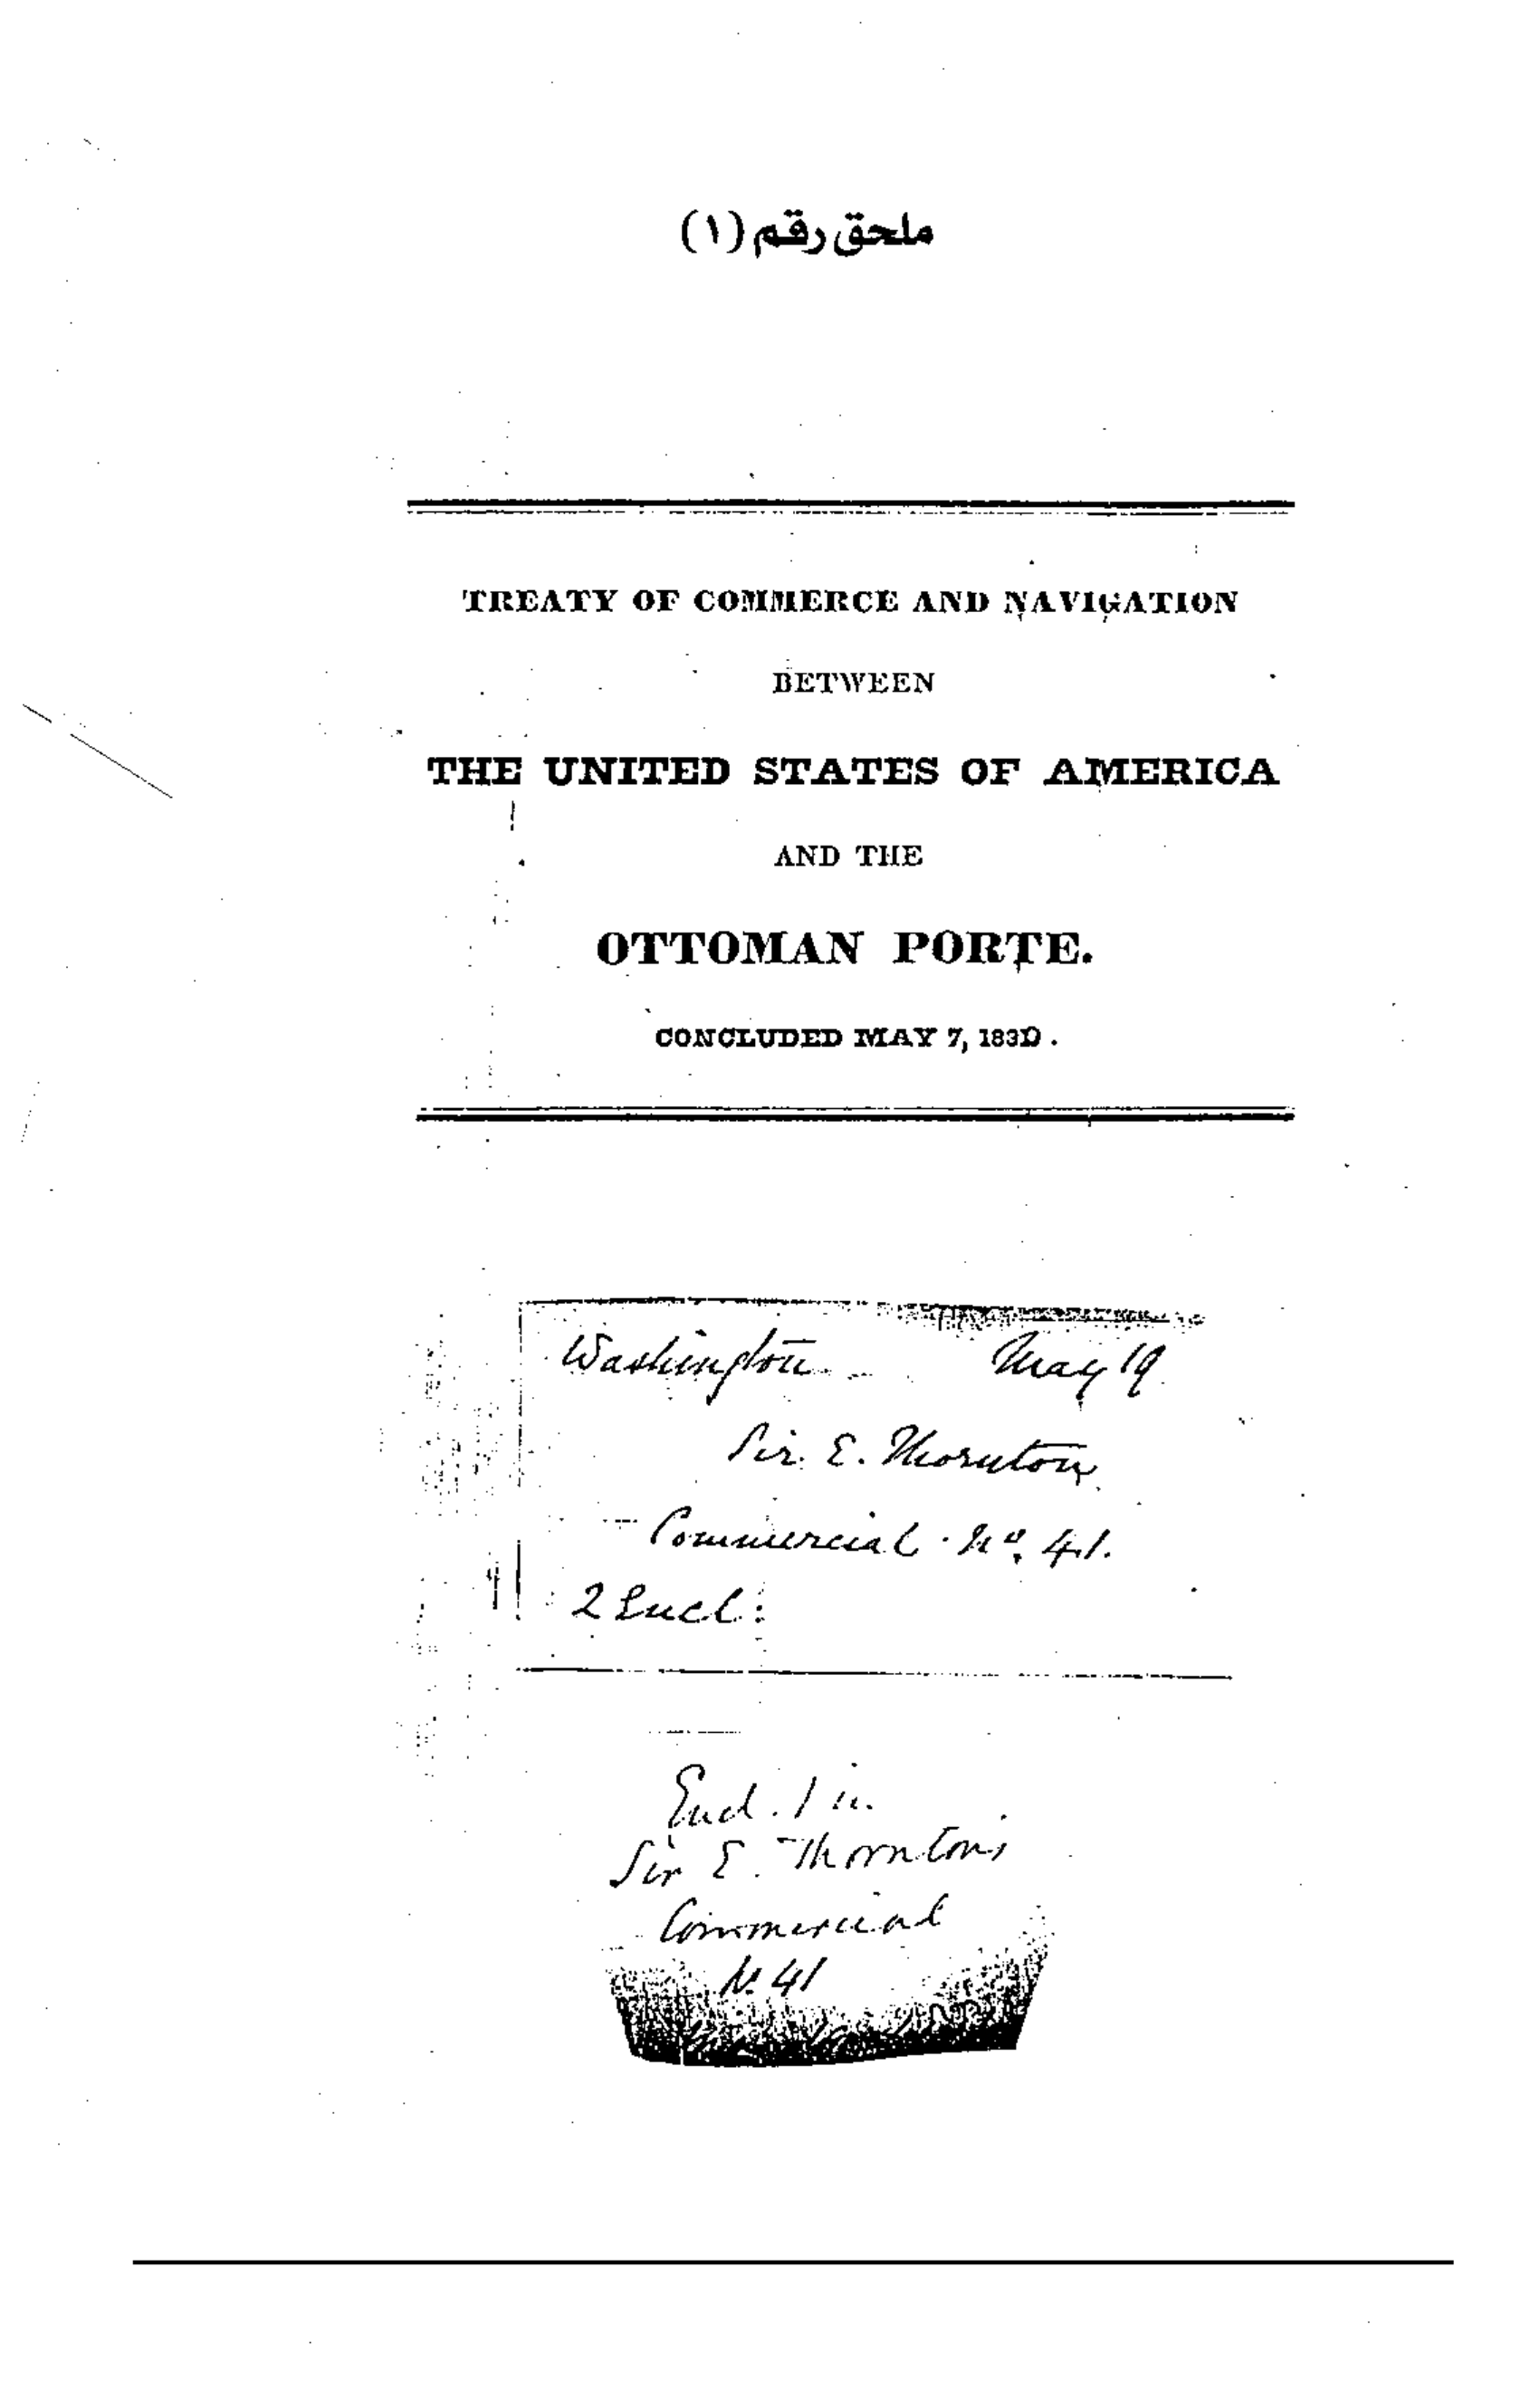 ملحق رقم (١)
TREATY OF COMMERCE AND NAVIGATION
BETWEEN
THE UNITED STATES OF AMERICA
AND THE
OTTOMAN PORTE.
CONCLUDED MAY 7, 1830.
Washington May 19
Sir E. Thornton
Commercial No. 41.
2 Encl:
Encl. 1 in
Sir E. Thornton's
Commercial
N. 41